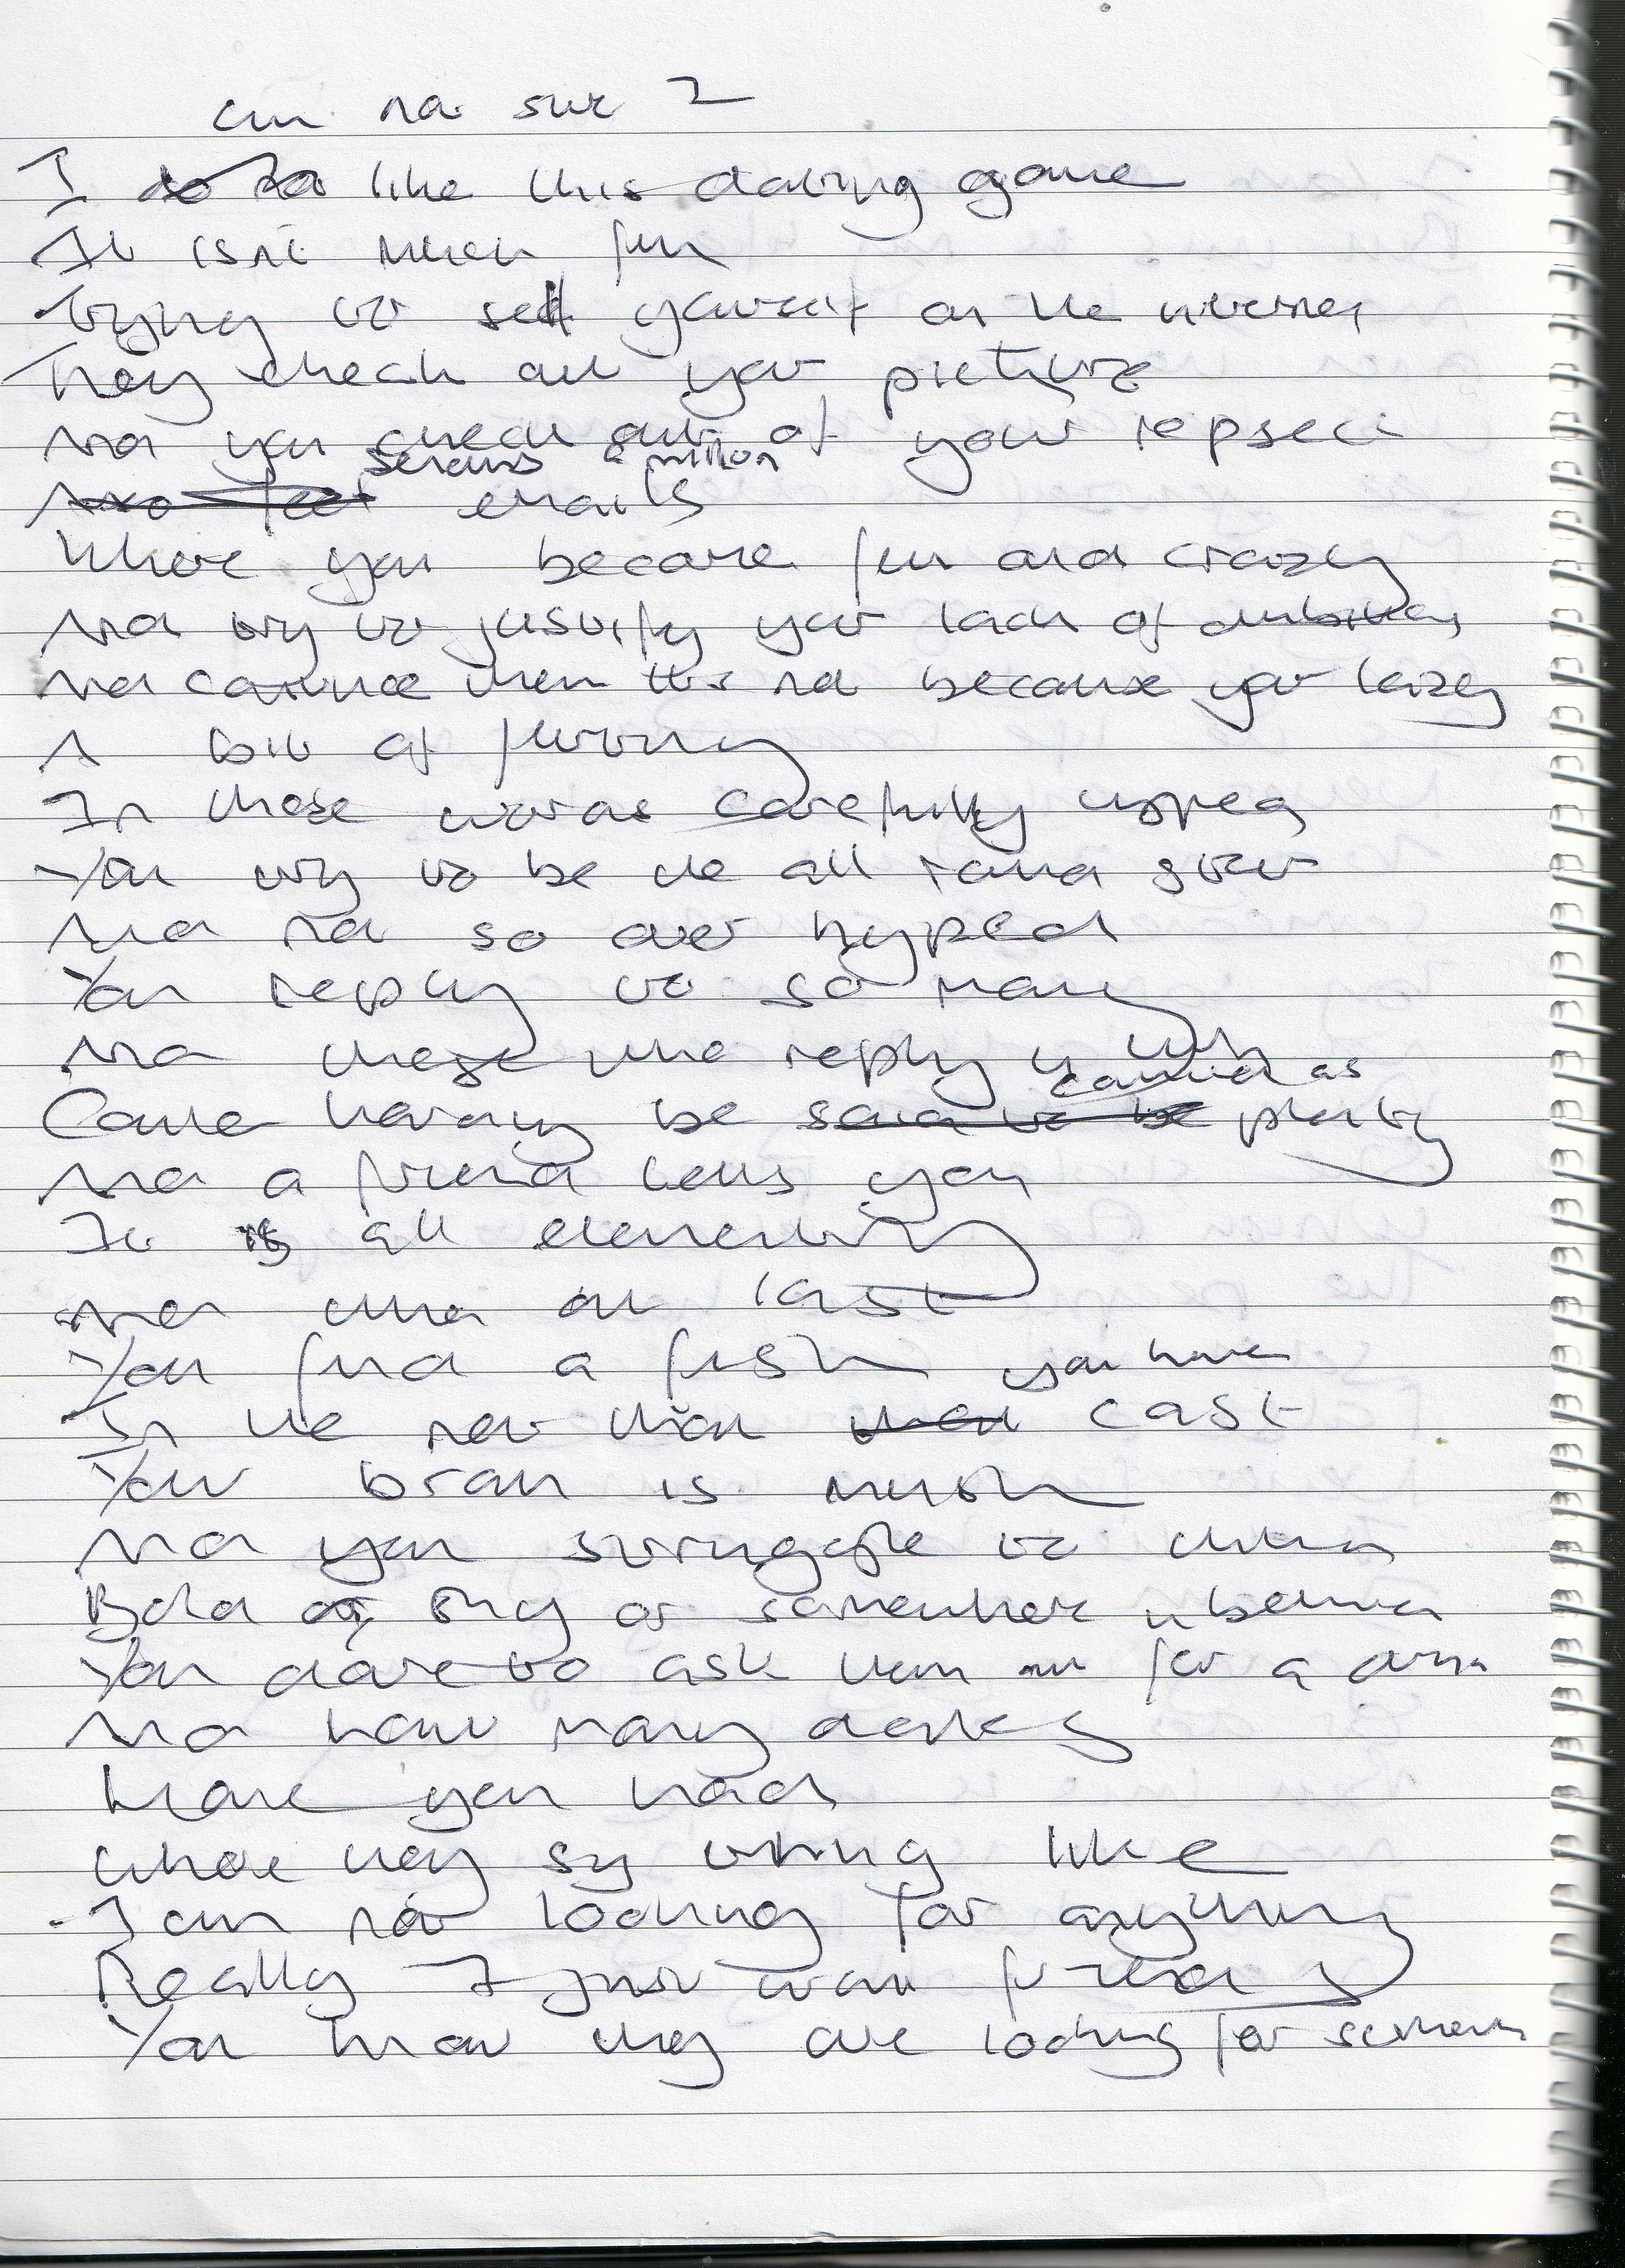 am not sure I
I do not like this dating game
It isnt much fun
Trying to sell yourself on the internet
They check out your picture
And you check out of your
sending a million
emails
Where you become fun and crazy
And try to justify your lack of
And convince them its not because your lazy
A bit of flirting
In those words carefully typed
You try to be the all round
And not so over hyped
You reply to so many
And these who reply
Could hardly be
counted as plenty
And a friend tells you
It is all elementry
And when at last
You find a fish
you have
In the net that cast
Your brain is mush
And you struggle to think
Bold or shy or somewhere inbetween
You dare to ask them out for a drink
And how many dates
Have you had
Where they say things like
I am not looking for anything
Really I just want friends
You know they are looking for someone